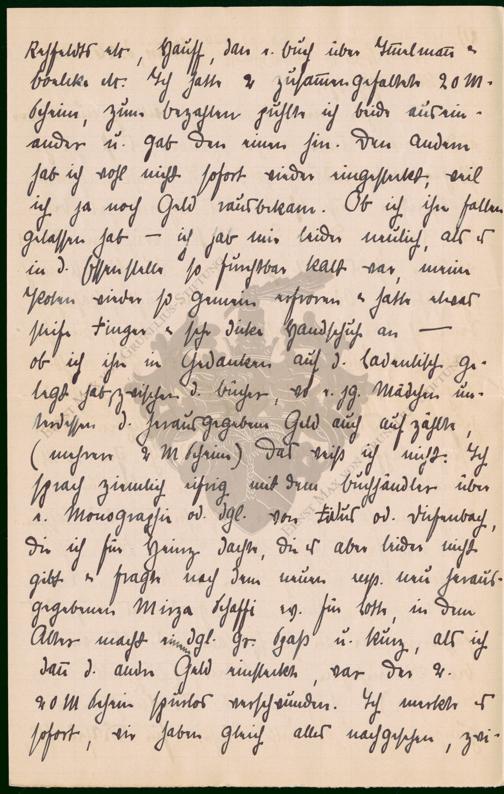 Rehfeldts etc, Hauff, dan e. buch über Immelmann u
boelcke etc. Ich hatte 2 zusammengefaltete 20 M-
Scheine, zum bezahlen fühlte ich beide ausein-
ander u. gab den einen hin. Den andern
hab ich wohl nicht sofort wieder eingesteckt, weil
ich ja noch Geld rausbekam. Ob ich ihn fallen
gelassen hab — ich hab mir leider neulich, als es
in d. Essenstelle so furchtbar kalt war, meine
Pfoten wieder so gemein erfroren u hatte etwas
steife Finger u sehr dicke Handschuh an —
ob ich ihn in Gedanken auf d. Ladentisch ge-
legt hab zwischen d. bücher, wo e. jg. Mädchen un-
terdessen d. herausgegebene Geld auch aufzählte,
(mehrere 2 M Scheine) das weiß ich nicht. Ich
sprach ziemlich eifrig mit dem buchhändler über
e. Monographie od. dgl. von Fidus od. Diefenbach,
die ich für Heinz dachte, die es aber leider nicht
gibt u fragte nach dem neuen resp. neu heraus-
gegebenen Mirza Schaffi ev. für Lotte, in dem
Alter macht einem dgl. gr. Spaß u. kurz, als ich
dann d. andre Geld einsteckte, war der 2.
20 M Schein spurlos verschwunden. Ich merkte es
sofort, wir haben gleich alles nachgesehen, zwi-